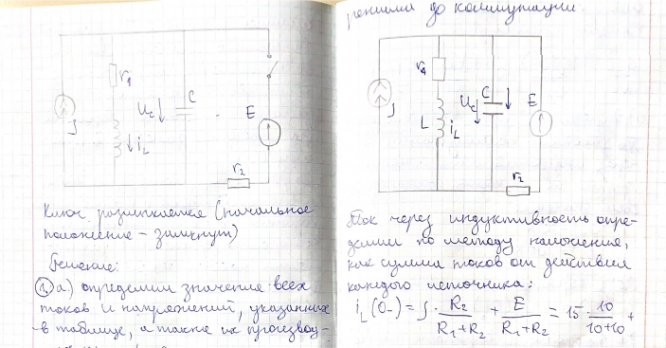 r₁
C
Uc
E
J
i_L
r₂
Ключ размыкается (начальное
положение - замкнут)
Решение:
1 а) определим значения всех
токов и напряжений, указанных
в таблице, а также их производ-
режима до коммутации
r₁
C
J
Uc
E
L
i_L
r₂
Ток через индуктивность опре-
делим по методу наложения,
как сумма токов от действия
каждого источника:
i_L(0-) = J · R₂/(R₁+R₂) + E/(R₁+R₂) = 15 · 10/(10+10) +